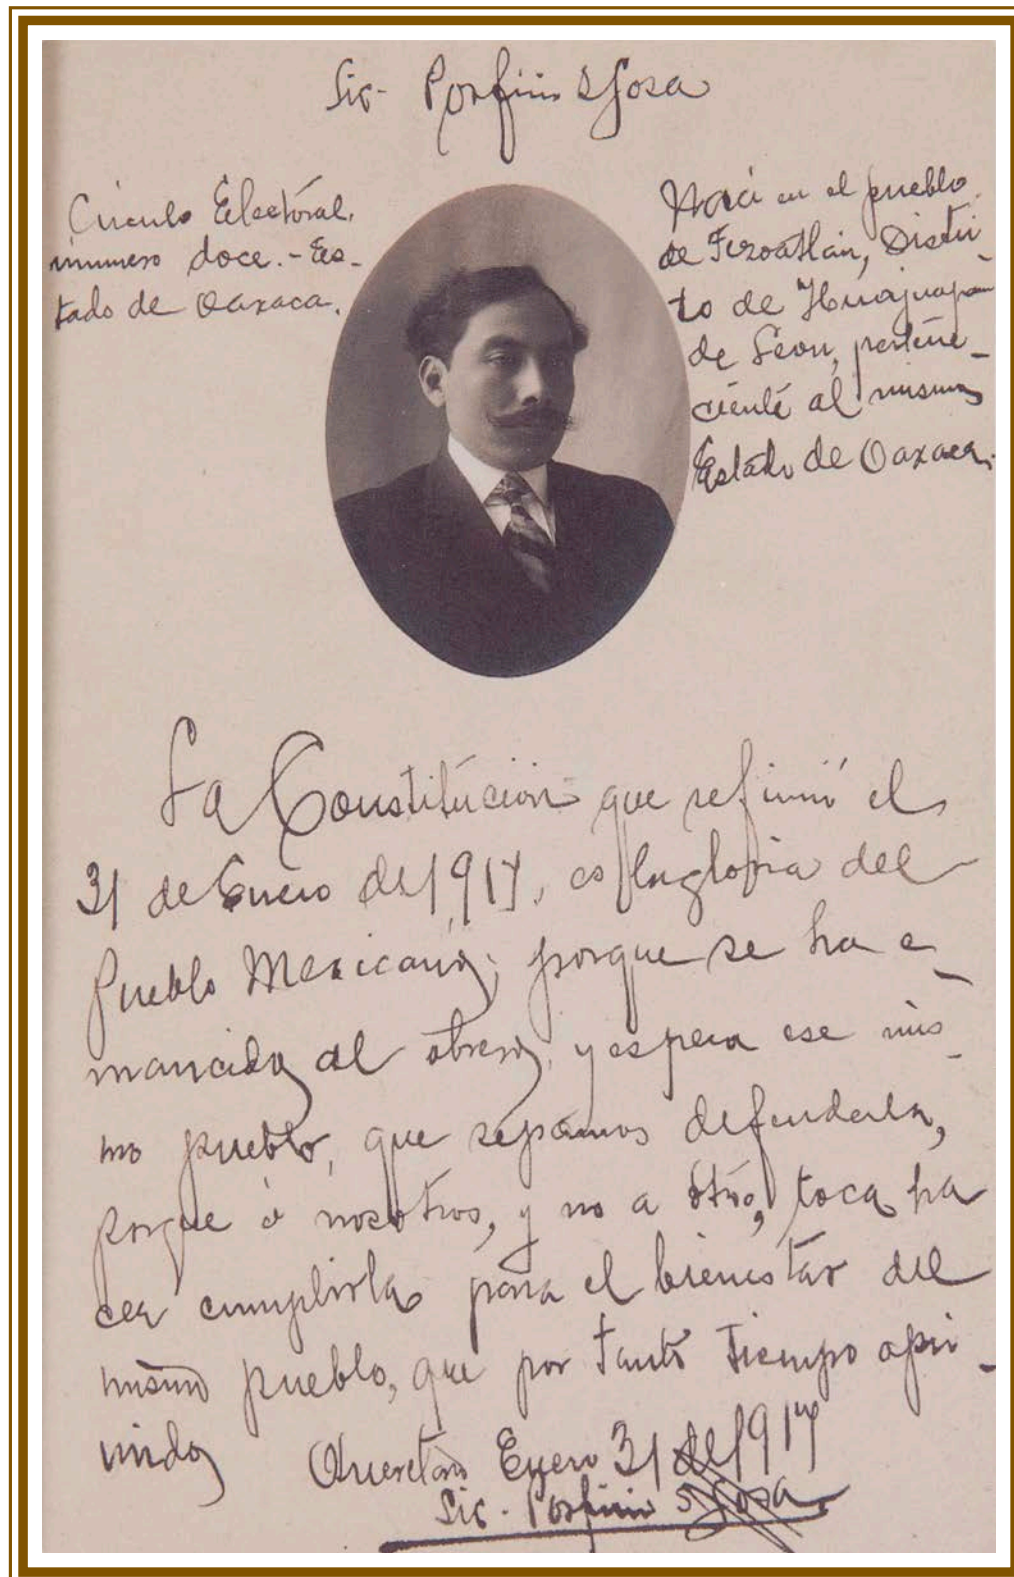 Lic- Porfirio Sosa
Círculo Electoral,
número doce.- Es-
tado de Oaxaca.
Nací en el pueblo
de Tezoatlán, Distri-
to de Huajuapan
de León, pertene-
ciente al mismo
Estado de Oaxaca.
La Constitución que se firmó el
31 de Enero de 1917, es la gloria del
Pueblo Mexicano; porque se ha e-
mancidado al obrero, y espera ese mis-
mo pueblo, que sepamos defenderla,
porque á nosotros, y no a otro, toca ha
cer cumplirla para el bienestar del
mismo pueblo, que por tanto tiempo opri-
mido
Querétaro Enero 31 de 1917
Lic. Porfirio Sosa